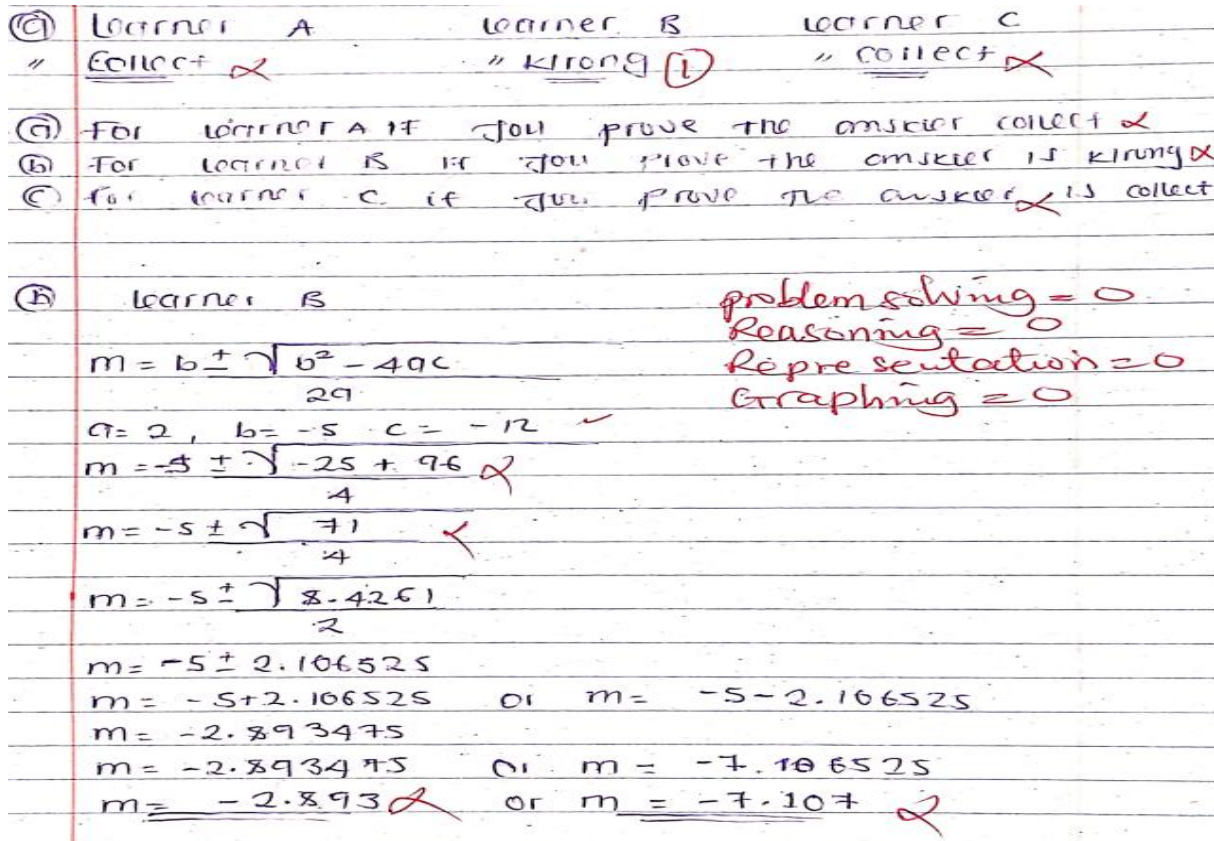 ⓐ Learner A learner B learner C
" Collect ✗ " klrong ① " collect ✗
ⓐ For learner A if you prove the answer collect ✗
ⓑ For learner B if you prove the answer is klrong ✗
ⓒ for learner C if you prove the answer ✗ is collect
ⓑ learner B problem solving = 0
Reasoning = 0
m = b ± √b² - 4ac Representation = 0
2a Graphing = 0
a= 2, b= -5 c= -12 ✓
m = -5 ± √-25 + 96 ✗
4
m = -5 ± √71 ✗
4
m = -5 ± √8.4261
2
m= -5 ± 2.106525
m= -5+2.106525 or m= -5-2.106525
m= -2.893475
m= -2.893475 or m = -7.106525
m= -2.893 ✗ or m = -7.107 ✗